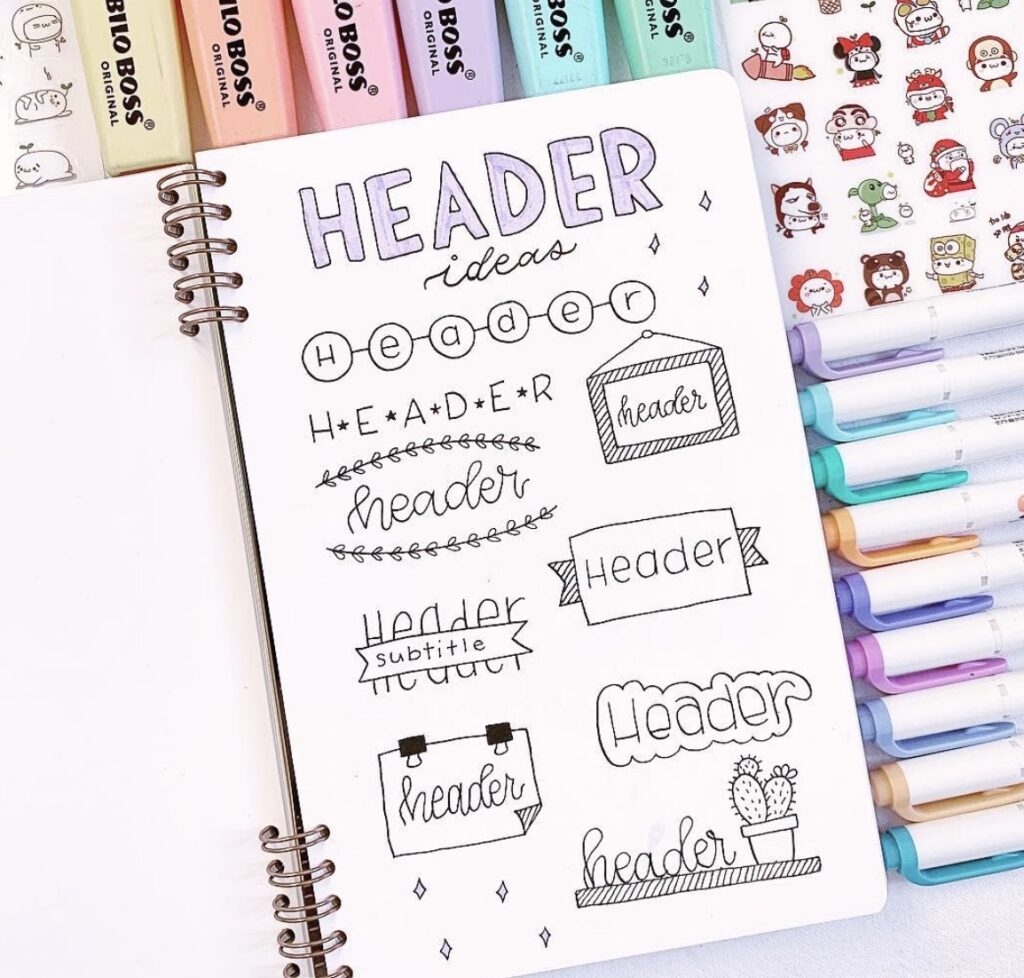 BILO BOSS®
ORIGINAL
BILO BOSS®
ORIGINAL
BILO BOSS®
ORIGINAL
BOSS®
ORIGINAL
BOSS®
ORIGINAL
OSS®
HEADER
ideas
Header
H★E★A★D★E★R
header
header
Header
Header
subtitle
Header
header
header